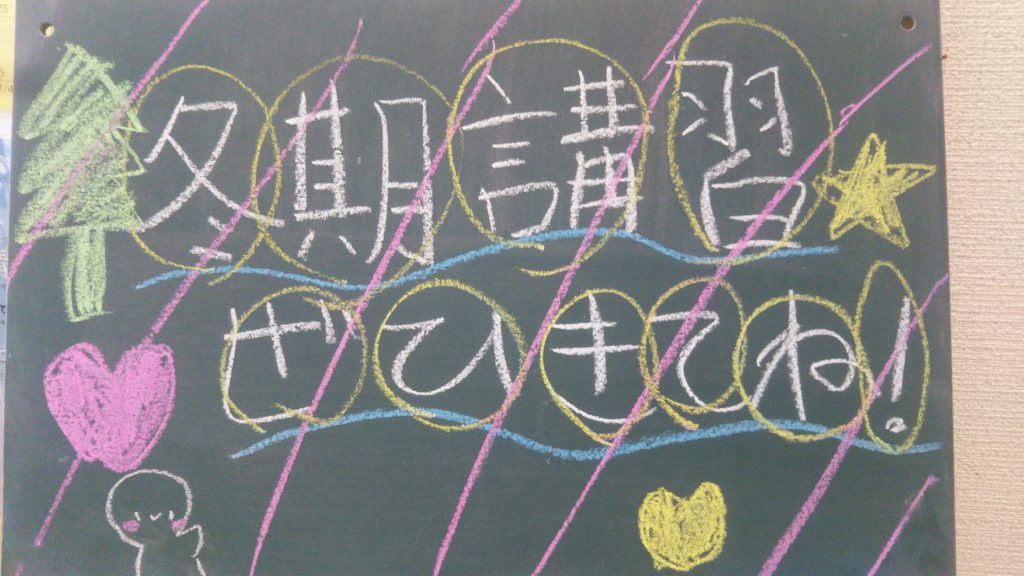 冬期講習
ぜひきてね!